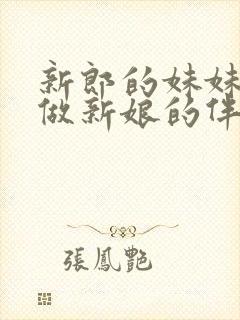 新郎的妹妹
做新娘的伴
張鳳艷